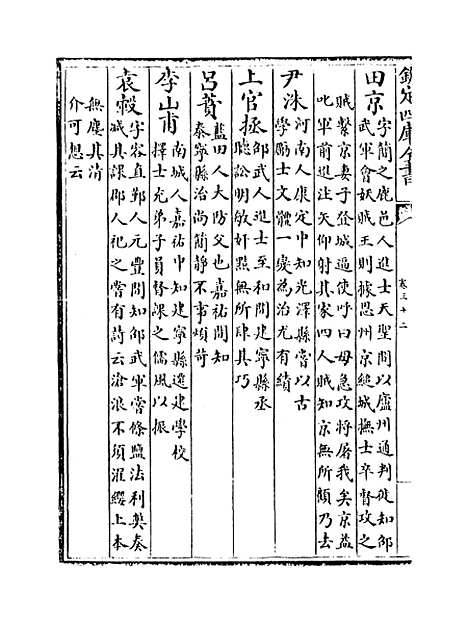 欽定四庫全書
卷三十二
田京 字簡之鹿邑人進士天聖間以廬州通判徙知邵
武軍會妖賊王則據恩州京縋城撫士卒督攻之
賊繫京妻子登城逼使呼曰毋急攻將屠我矣京益
叱軍前進注矢仰射其家四人賊知京無所顧乃去
尹洙 河南人康定中知光澤縣嘗以古
學勵士文體一變為治尤有績
上官拯 邵武人進士至和間建寧縣丞
聽訟明敏奸黠無所肆其巧
呂蕡 藍田人大防父也嘉祐間知
泰寧縣治尚簡靜不事煩苛
李山甫 南城人嘉祐中知建寧縣選建學校
擇士充弟子員督課之儒風以振
袁轂 字容直鄞人元豐間知邵武軍嘗條鹽法利獘奏
减其課郡人祀之嘗有詩云滄浪不須濯纓上本
無塵其清
介可想云